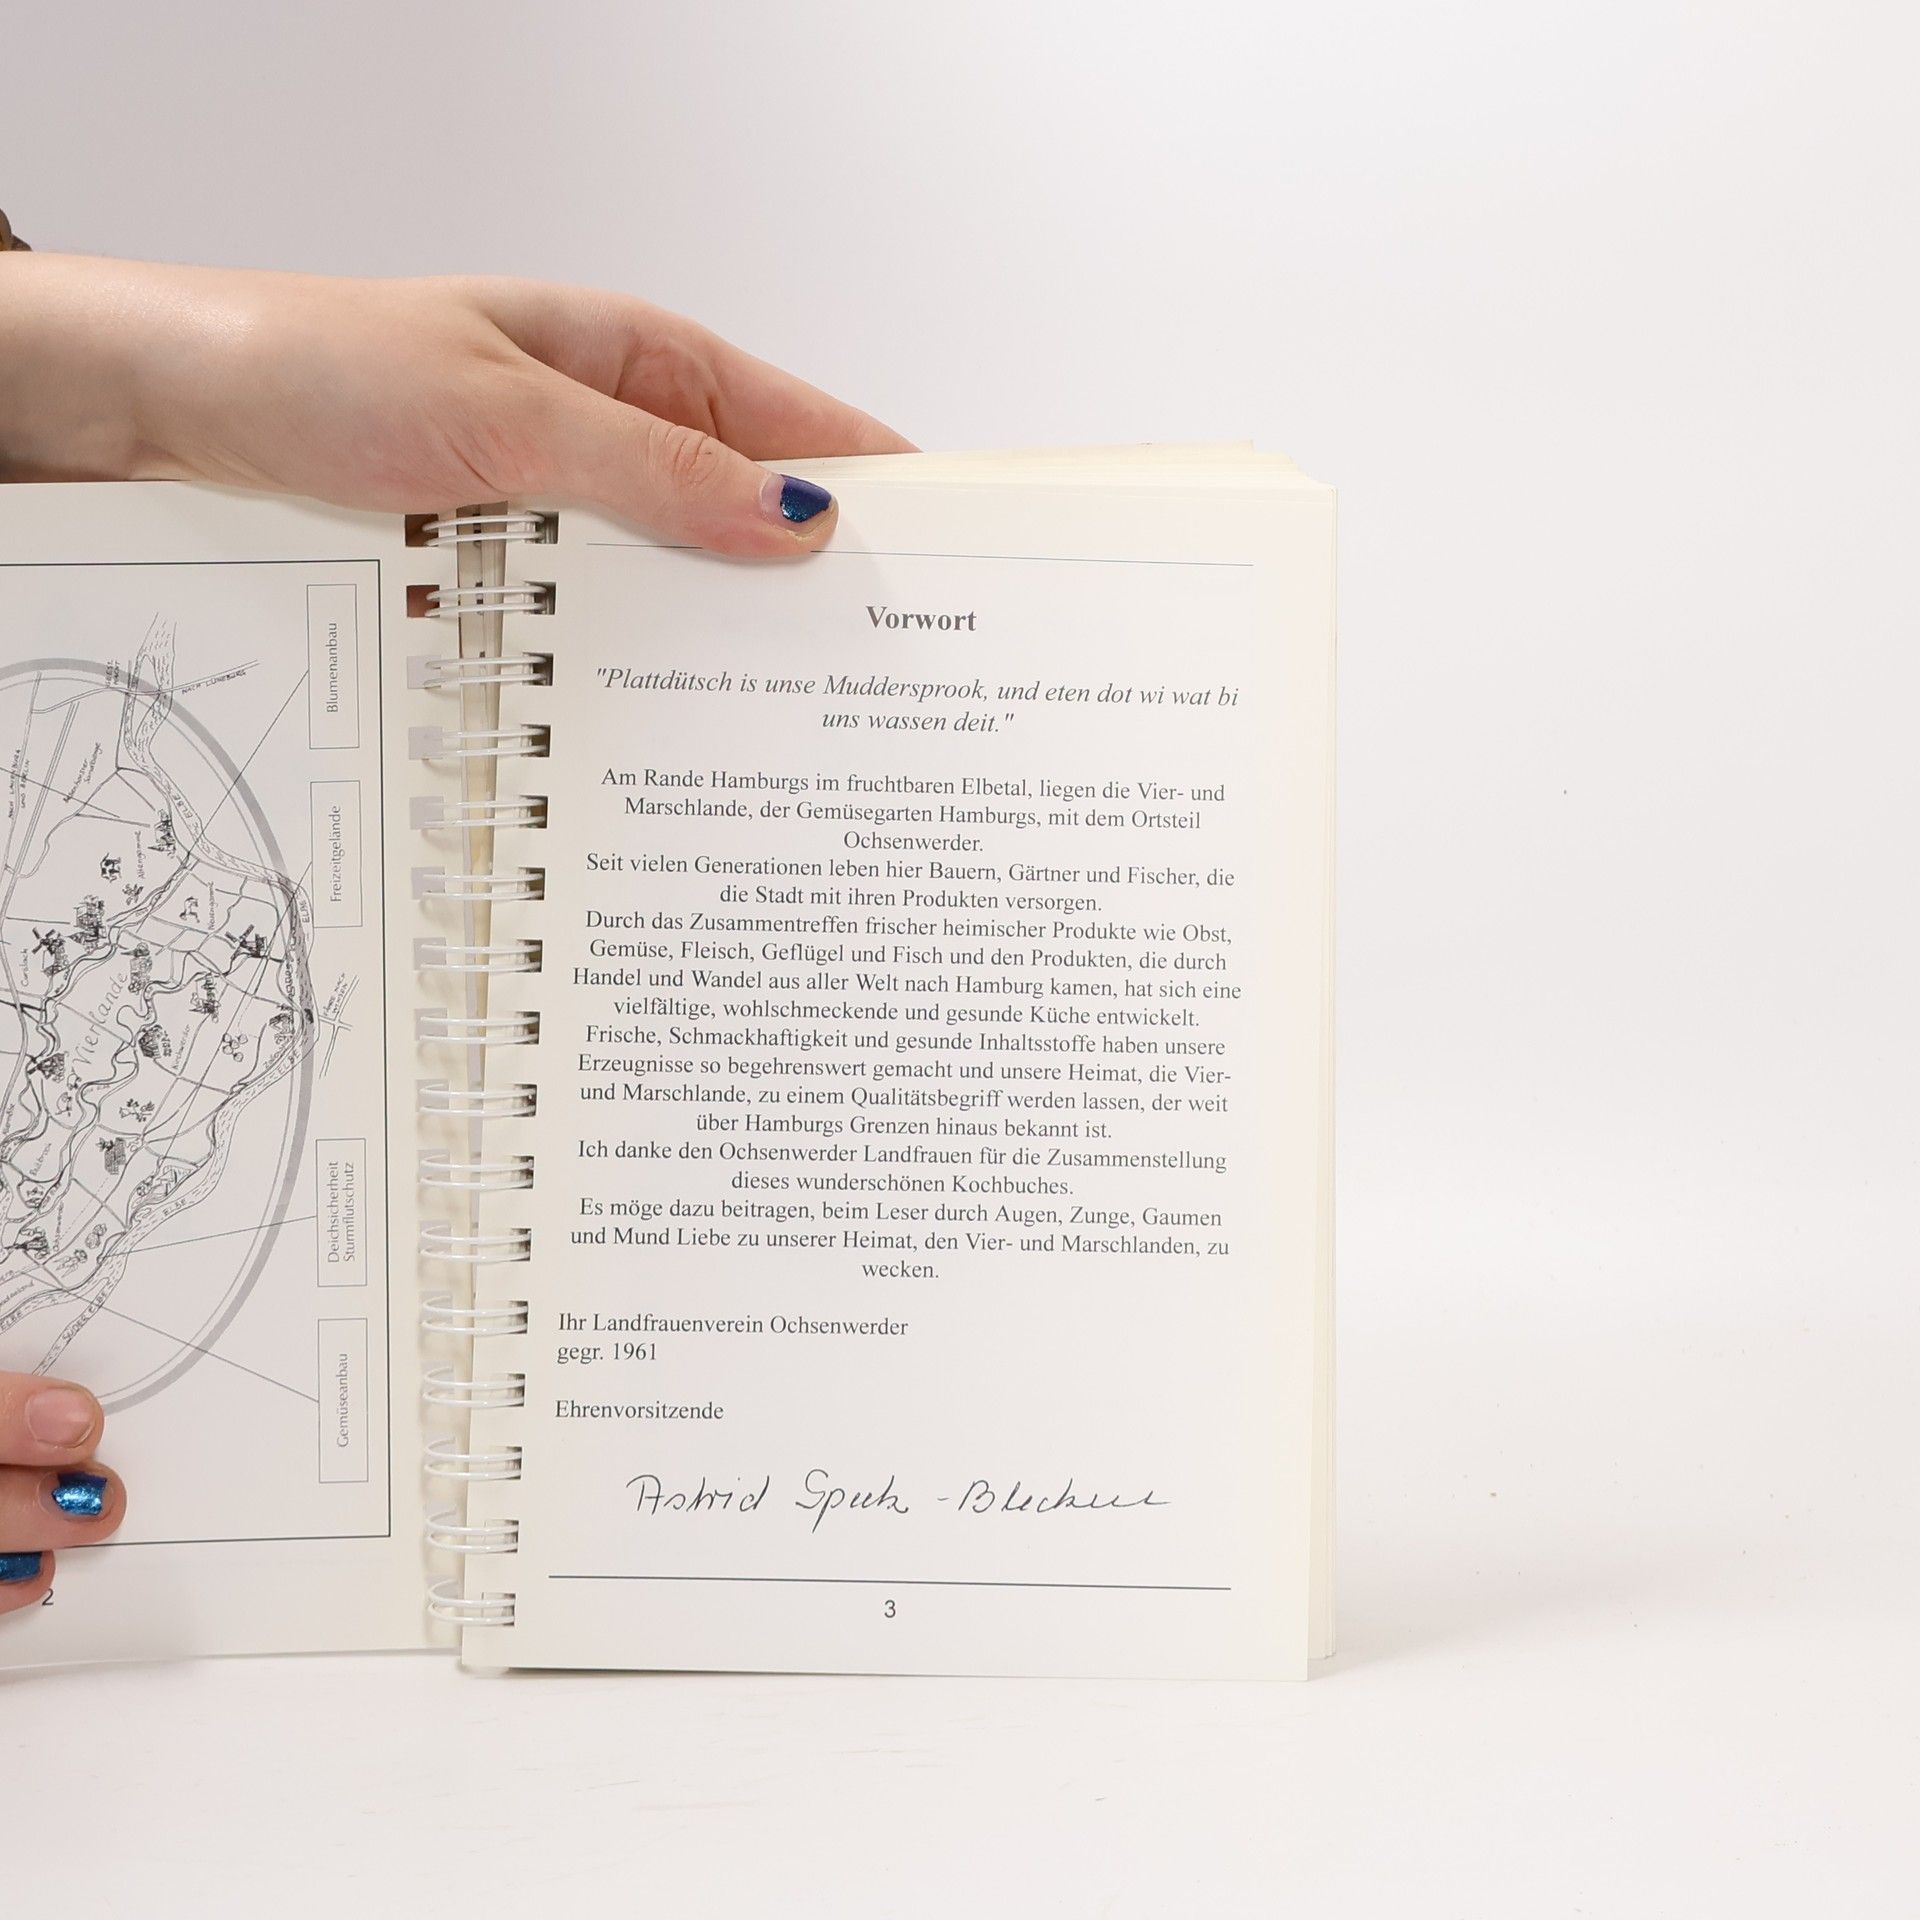 Blumenanbau
Freizeitgelände
Deichsicherheit
Sturmflutschutz
Gemüseanbau
NACH LÜNEBURG
Vierlande
ELBE
ELBE
ELBE
ELBE
SÜDER ELBE
Curslack
Altengamme
Neuengamme
Kirchwerder
2
Vorwort
"Plattdütsch is unse Muddersprook, und eten dot wi wat bi
uns wassen deit."
Am Rande Hamburgs im fruchtbaren Elbetal, liegen die Vier- und
Marschlande, der Gemüsegarten Hamburgs, mit dem Ortsteil
Ochsenwerder.
Seit vielen Generationen leben hier Bauern, Gärtner und Fischer, die
die Stadt mit ihren Produkten versorgen.
Durch das Zusammentreffen frischer heimischer Produkte wie Obst,
Gemüse, Fleisch, Geflügel und Fisch und den Produkten, die durch
Handel und Wandel aus aller Welt nach Hamburg kamen, hat sich eine
vielfältige, wohlschmeckende und gesunde Küche entwickelt.
Frische, Schmackhaftigkeit und gesunde Inhaltsstoffe haben unsere
Erzeugnisse so begehrenswert gemacht und unsere Heimat, die Vier-
und Marschlande, zu einem Qualitätsbegriff werden lassen, der weit
über Hamburgs Grenzen hinaus bekannt ist.
Ich danke den Ochsenwerder Landfrauen für die Zusammenstellung
dieses wunderschönen Kochbuches.
Es möge dazu beitragen, beim Leser durch Augen, Zunge, Gaumen
und Mund Liebe zu unserer Heimat, den Vier- und Marschlanden, zu
wecken.
Ihr Landfrauenverein Ochsenwerder
gegr. 1961
Ehrenvorsitzende
Astrid
3